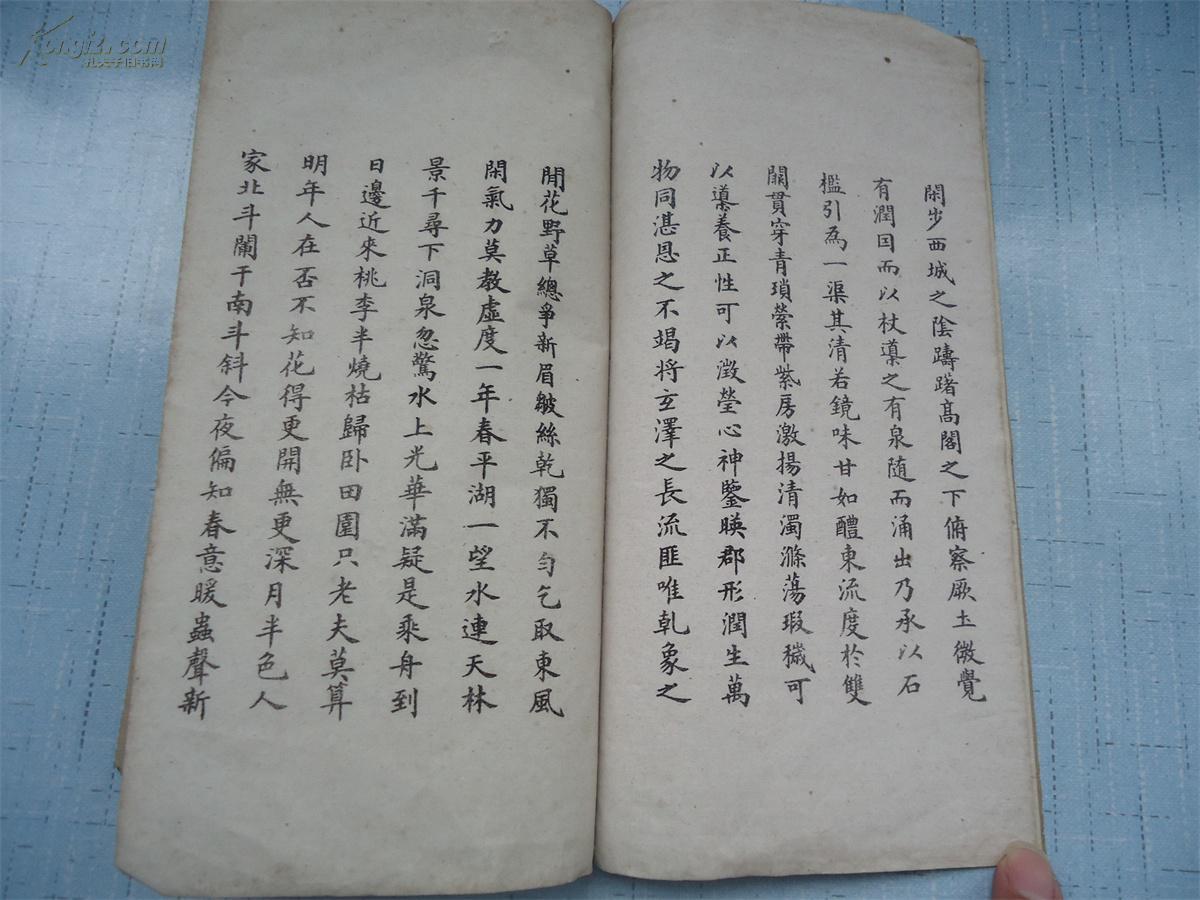 閑步西城之陰躊躇高閣之下俯察厥土微覺
有潤囙而以杖𨗳之有泉随而涌出乃承以石
檻引為一渠其清若鏡味甘如醴東流度於雙
闕貫穿青瑣縈帶紫房激揚清濁滌蕩瑕穢可
以𨗳養正性可以澂瑩心神鑒暎郡形潤生萬
物同湛恩之不竭将玄澤之長流匪唯乹象之
閒花野草總爭新眉皺絲乾獨不勻乞取東風
閑氣力莫教虛度一年春平湖一望水連天林
景千尋下洞泉忽驚水上光華滿疑是乘舟到
日邊近來桃李半燒枯歸卧田園只老夫莫算
明年人在否不知花得更開無更深月半色人
家北斗闌干南斗斜今夜偏知春意暖蟲聲新
Kongfz.com
孔夫子旧书网